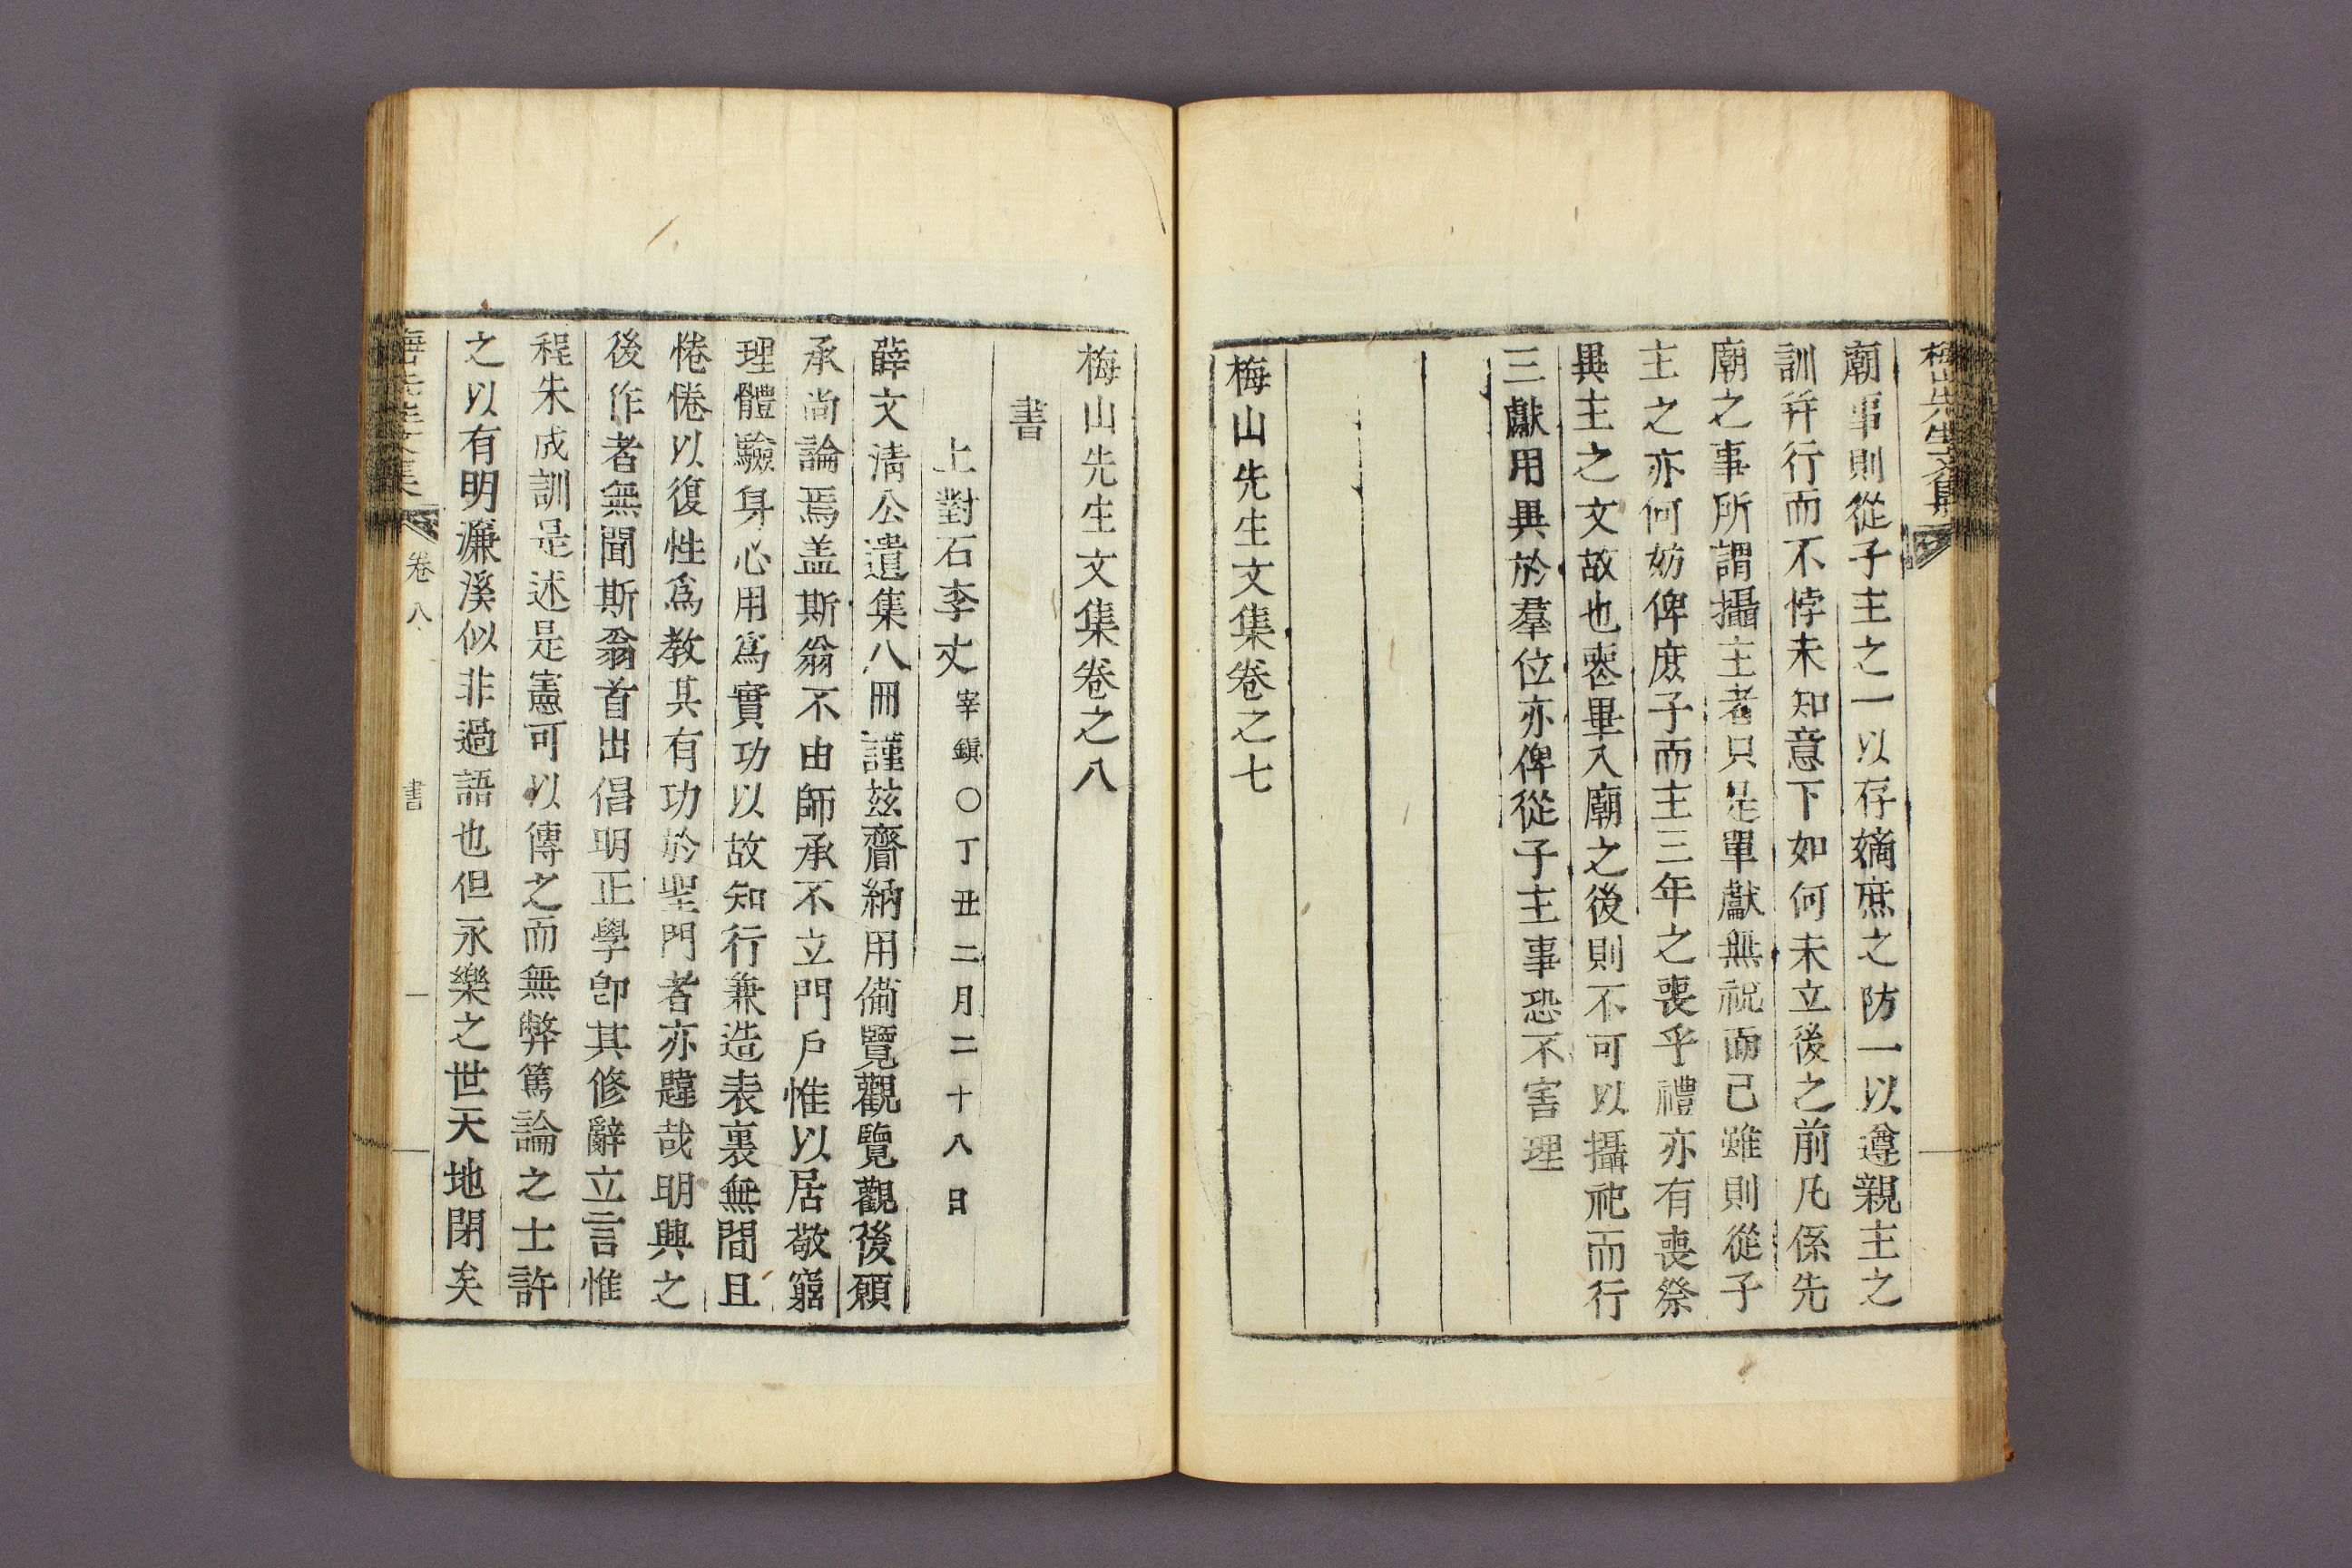 梅山先生文集
廟事則從子主之一以存嫡庶之防一以遵親主之
訓幷行而不悖未知意下如何未立後之前凡係先
廟之事所謂攝主者只是單獻無祝而已雖則從子
主之亦何妨俾庶子而主三年之喪乎禮亦有喪祭
異主之文故也喪畢入廟之後則不可以攝祀而行
三獻用異於羣位亦俾從子主事恐不害理
梅山先生文集卷之七
梅山先生文集卷之八
書
上對石李丈宰鎭○丁丑二月二十八日
薛文淸公遺集八冊謹玆齎納用備覽觀覽觀後願
承尙論焉盖斯翁不由師承不立門戶惟以居敬窮
理體驗身心用爲實功以故知行兼造表裏無間且
惓惓以復性爲敎其有功於聖門者亦韙哉明興之
後作者無聞斯翁首出倡明正學卽其修辭立言惟
程朱成訓是述是憲可以傳之而無弊篤論之士許
之以有明濂溪似非過語也但永樂之世天地閉矣
梅山先生文集 卷八 書 一